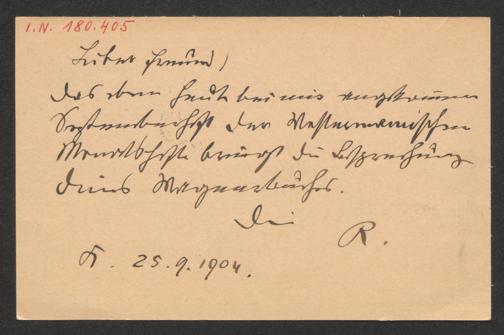 I.N. 180.405
Lieber Freund!
Das eben heut bei mir angekommene
Septemberheft der Westermannschen
Monatshefte bringt die Besprechung
deines Wagnerbuches.
Dein
R.
25.9.1904.